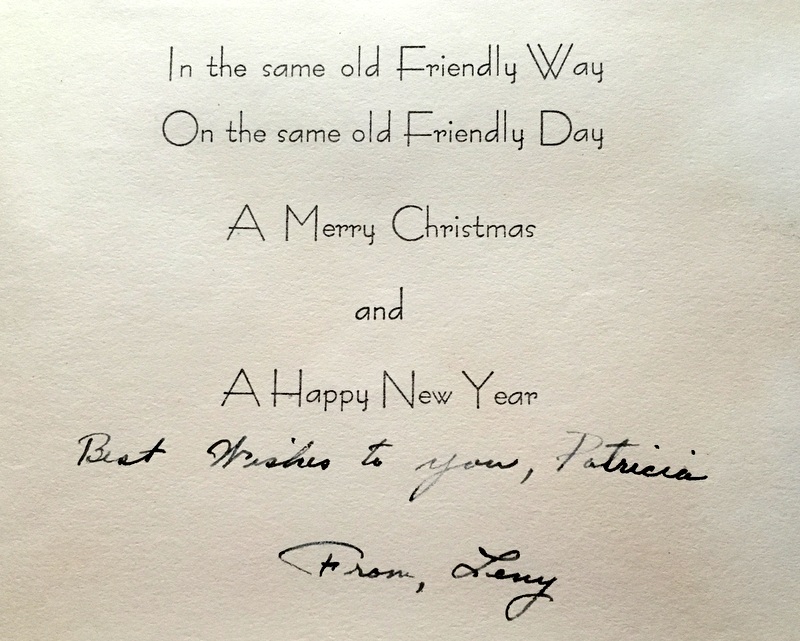 In the same old Friendly Way
On the same old Friendly Day
A Merry Christmas
and
A Happy New Year
Best Wishes to you, Patricia
From, Leny